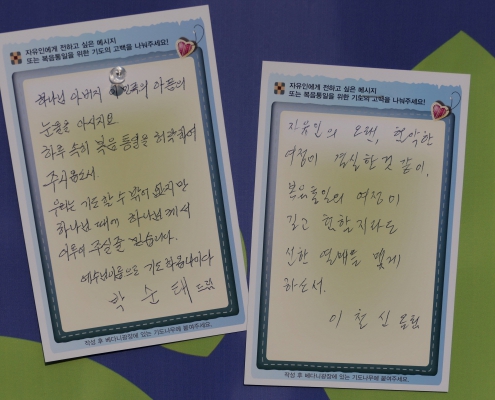 자유인에게 전하고 싶은 메시지
또는 복음통일을 위한 기도의 고백을 나눠주세요!
하나님 아버지 이 민족의 아픔의
눈물을 아시지요
하루 속히 복음 통일을 허락하여
주시옵소서.
우리는 기도할 수 밖에 없지만
하나님 때에 하나님께서
이루어 주실줄 믿습니다.
예수님이름으로 기도하옵나이다
박 순 태 드림
작성 후 베다니광장에 있는 기도나무에 붙여주세요.
자유인에게 전하고 싶은 메시지
또는 복음통일을 위한 기도의 고백을 나눠주세요!
자유인의 오랜, 험악한
여정이 결실한것 같이,
복음통일의 여정이
길고 험할지라도
선한 열매를 맺게
하소서.
이 철 신
작성 후 베다니광장에 있는 기도나무에 붙여주세요.